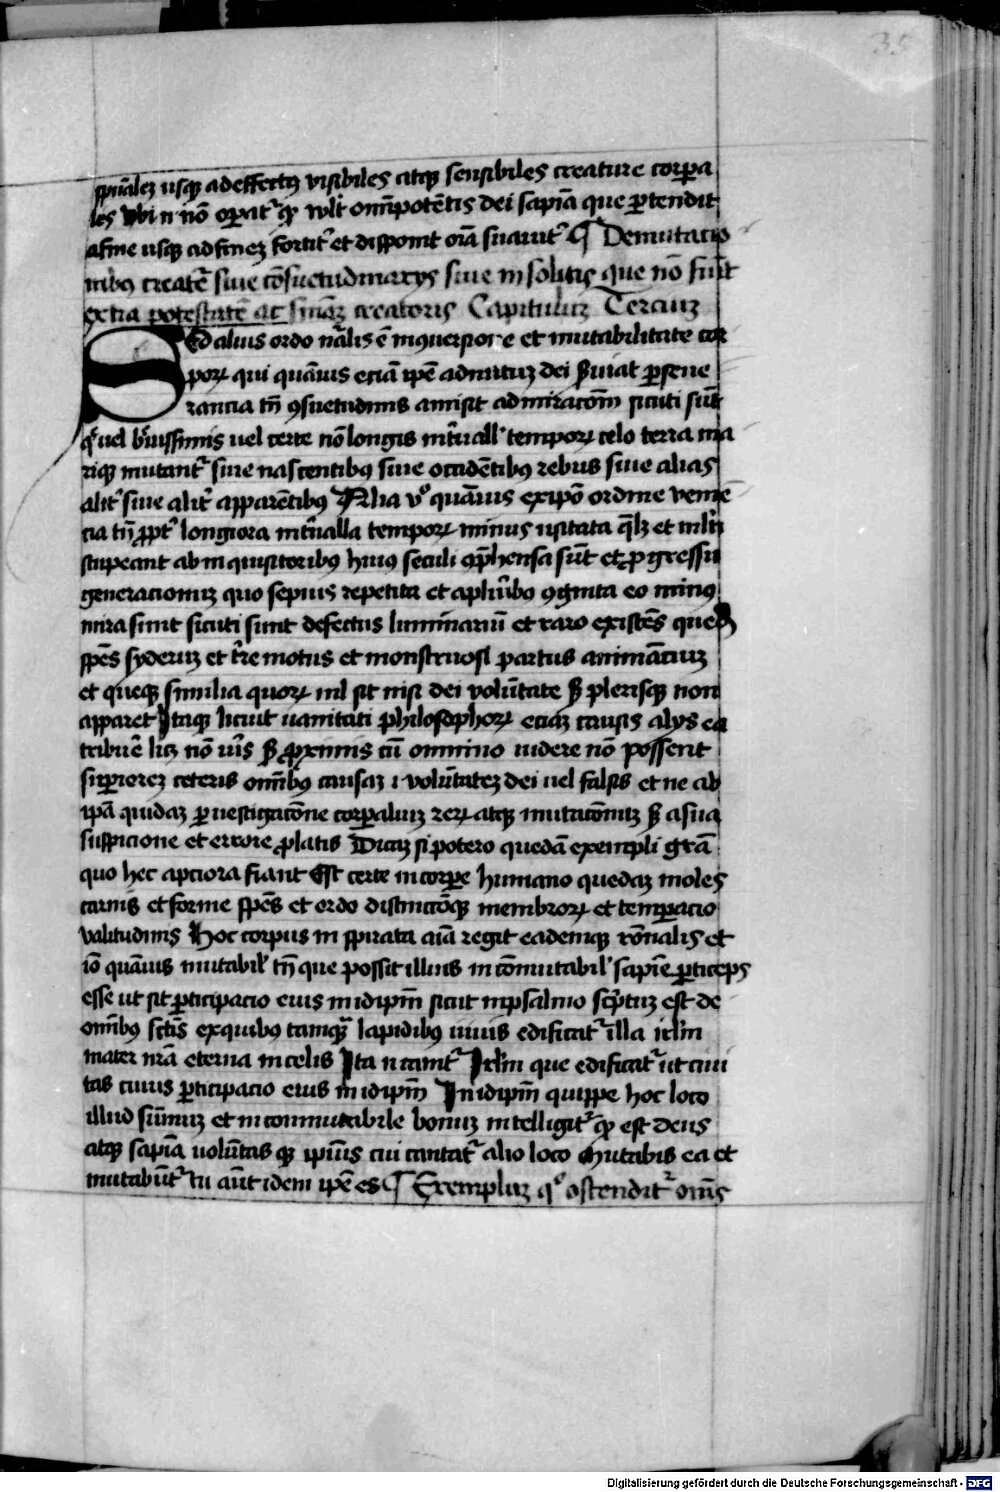 35
spūalez usqꝫ ad effectꝰ visibiles atqꝫ sensibiles creature corpa
les Vbi n̄ nō opat᷑ qꝫ vlt̄ omīpotētis dei sapīa que ptendit
a fine usqꝫ ad finez fortit᷑ et disponit oīa suauit᷑ ¶ De mutacio
nibꝰ creatē siue cōsuetudinarijs siue insolitis que nō siūt
extra potestatē ac sniaꝫ creatoris Capitulum Tercium
Sed alius ordo nālis ē in quersione et mutabilitate cor
poꝝ qui quāuis eciā ipē ad nutuꝫ dei ẜuiat pseue
rancia tn̄ ꝯsuetudinis amisit admiracōm sicuti sūt
q̄ uel bͥuissimis uel certe nō longis int̄uall᷑ tempoꝝ celo terra ma
riqꝫ mutant᷑ siue nascentibꝰ siue occidētibꝰ rebus siue alias
alit᷑ siue alit᷑ apparētibꝰ Alia v͛o quāuis ex ipō ordine venīe
cia tn̄ ꝓpt᷑ longiora int̄ualla tempoꝝ minus usitata q̄lꝫ et ml̄ti
stupeant ab inquisitoribꝰ huiꝰ seculi ꝯp̄hensa sūt et ꝓgressu
generacionuꝫ quo sepius repetita et a pluībꝰ ꝯgnita eo minꝰ
mira sunt sicuti sunt defectus luminariū et raro existēs quedā
spēs syderuꝫ et t̄re motus et monstruosi partus animāciuꝫ
et queqꝫ similia quoꝝ nil sit nisi dei volūtate ẜ plerisqꝫ non
apparet Itaqꝫ licuit uanitati philosophoꝝ eciaꝫ causis alijs ea
tribuē l'ꝫ nō u̅is ẜ ꝓximis cū omnino uidere nō possent
supiorez ceteris oīm̄bꝰ causaꝫ ī volūtatez dei uel falsis et ne ab
ipā quidaꝫ puestigacōne corpaliuꝫ reꝝ atqꝫ mutacōnuꝫ ẜ a sua
suspicione et errore ꝓlatis Dicaꝫ si potero quedā exempli grā
quo hec apciora fiant Est certe in corpe humano quedaꝫ moles
carnis et forme spēs et ordo distinctōqꝫ membroꝝ et tempacio
valitudinis Hoc corpus inspirata aīa regit eademqꝫ rōnalis et
iō quāuis mutabil᷑ tn̄ que possit illius incōmutabil᷑ sapīe pticeps
esse ut sit pticipacio eius in idipm̄ sicut in psalmo scptuꝫ est de
omībꝰ sctīs ex quibꝰ tamqꝫ lapidibꝰ uiuis edificat᷑ illa irlm̄
mater nr̄a eterna in celis Ita n̄ cantat᷑ Irlm̄ que edificat᷑ ut ciui
tas cuius pticipacio eius in idipm̄ In idipm̄ quippe hoc loco
illud sūmuꝫ et incommutabile bonuꝫ intelligit᷑ qꝫ est deus
atqꝫ sapīa volūtas qꝫ ipiūs cui cantat᷑ alio loco Mutabis ea et
mutabūt᷑ tu aūt idem ipē es ¶ Exempluꝫ qͦ ostendit᷑ oīms
Digitalisierung gefördert durch die Deutsche Forschungsgemeinschaft - DFG